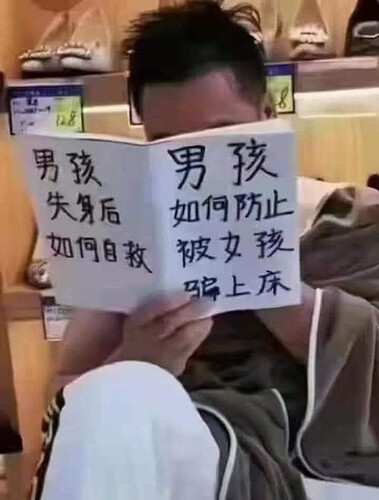 男孩
失身后
如何自救
男孩
如何防止
被女孩
骗上床
128